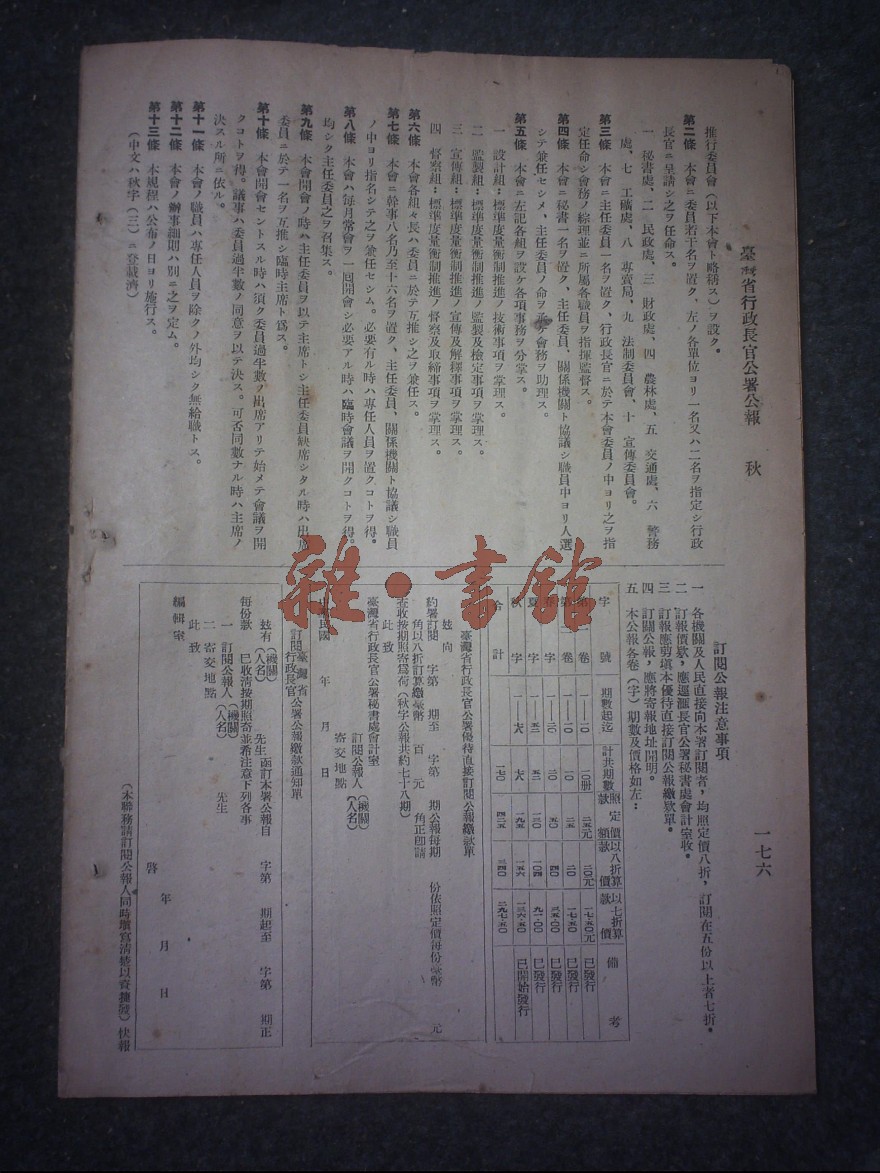 臺灣省行政長官公署公報　秋　一七六
推行委員會（以下本會ト略稱。）ヲ設ク。
第二條　本會ニ委員若干名ヲ置ク、左ノ各單位ヨリ一名又ハ二名ヲ指定シ行政
長官ニ呈請シ之ヲ任命ス。
一　秘書處、二　民政處、三　財政處、四　農林處、五　交通處、六　警務
處、七　工礦處、八　專賣局、九　法制委員會、十　宣傳委員會。
第三條　本會ニ主任委員一名ヲ置ク、行政長官ニ於テ本會委員ノ中ヨリ之ヲ指
定任命シ會務ノ綜理並ニ所屬各職員ヲ指揮監督ス。
第四條　本會ニ秘書一名ヲ置ク、主任委員、關係機關ト協議シ職員中ヨリ人選
シテ兼任セシメ、主任委員ノ命ヲ承ケ會務ヲ助理ス。
第五條　本會ニ左記各組ヲ設ケ各項事務ヲ分掌ス。
一　設計組：標準度量衡制推進ノ技術事項ヲ掌理ス。
二　監製組：標準度量衡制推進ノ監製及檢定事項ヲ掌理ス。
三　宣傳組：標準度量衡制推進ノ宣傳及解釋事項ヲ掌理ス。
四　督察組：標準度量衡制推進ノ督察及取締事項ヲ掌理ス。
第六條　本會各組々長ハ委員ニ於テ互推シ之ヲ兼任ス。
第七條　本會ニ幹事八名乃至十六名ヲ置ク、主任委員、關係機關ト協議シ職員
ノ中ヨリ指名シテ之ヲ兼任セシム。必要有ル時ハ專任人員ヲ置クコトヲ得。
第八條　本會ハ每月常會ヲ一囘開會シ必要アル時ハ臨時會議ヲ開クコトヲ得。
均シク主任委員之ヲ召集ス。
第九條　本會開會ノ時ハ主任委員ヲ以テ主席トシ主任委員缺席シタル時ハ出席
委員ニ於テ一名ヲ互推シ臨時主席ト爲ス。
第十條　本會開會セントスル時ハ須ク委員過半數ノ出席アリテ始メテ會議ヲ開
クコトヲ得。議事ハ委員過半數ノ同意ヲ以テ決ス。可否同數ナル時ハ主席ノ
決スル所ニ依ル。
第十一條　本會ノ職員ハ專任人員ヲ除クノ外均シク無給職トス。
第十二條　本會ノ辦事細則ハ別ニ之ヲ定ム。
第十三條　本規程ハ公布ノ日ヨリ施行ス。
（中文ハ秋字（三）ニ登載濟）
訂閱公報注意事項
一　各機關及人民直接向本署訂閱者，均照定價八折，訂閱在五份以上者七折。
二　訂報價款，應逕匯長官公署秘書處會計室收。
三　訂報應剪塡本優待直接訂閱公報繳款單。
四　訂閱公報，應將寄報地址開明。
五　本公報各卷（字）期數及價格如左：
字　號　期數起迄　計共期數　照定價款額　以八折算款　以七折算款價　備　考
第一卷　一——一〇　一〇册　二五元　二〇元　一七·五〇元　已發行
第二卷　一——一〇　一〇　二五　二〇　一七·五〇　已發行
春　字　一——二〇　二〇　五〇　四〇　三五·〇〇　已發行
夏　字　一——五二　五二　一三〇　一〇四　九一·〇〇　已發行
秋　字　一——七八　七八　一九五　一五六　一三六·五〇　已開始發行
合　計　一七〇　四二五　三四〇　二九七·五〇
臺灣省行政長官公署優待直接訂閱公報繳款單
玆向
約署訂閱　字第　期至　字第　期公報每期　份依照定價每份臺幣　元
角以八折訂算繳臺幣　百　元　角正卽請
查收按期照寄爲荷（秋字公報共約七十八期）
此致
臺灣省行政長官公署秘書處會計室
訂閱公報人（機關）（人名）
寄交地點
民國　年　月　日
訂閱臺灣省行政長官公署公報繳款通知單
玆有（機關）（人名）　先生函訂本署公報自　字第　期起至　字第　期正
每份款　已收淸按期照寄並希注意下列各事
一　訂閱公報人（機關）（人名）　先生
二　寄交地點
此致
編輯室
啓　年　月　日
（本聯務請訂閱公報人同時塡寫淸楚以資捷發）快報
雜·書館